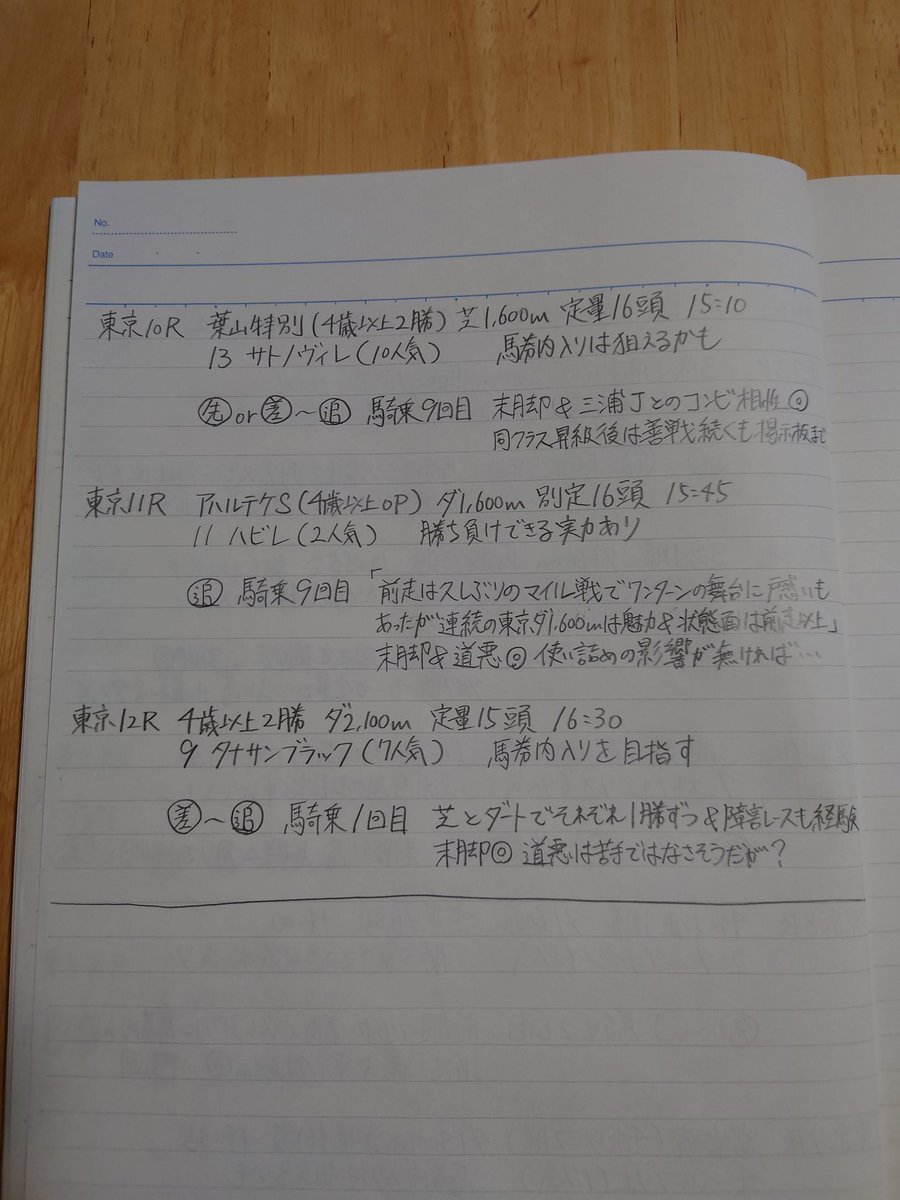 No.
Date
東京10R 葉山特別(4歳以上2勝) 芝1,600m 定量16頭 15:10
13 サトノヴィレ(10人気) 馬券内入りは狙えるかも
先or差~追 騎乗9回目 末脚&三浦Jとのコンビ相性◎
同クラス昇級後は善戦続くも掲示板まで
東京11R アハルテケS(4歳以上OP) ダ1,600m 別定16頭 15:45
11 ハビレ(2人気) 勝ち負けできる実力あり
追 騎乗9回目 「前走は久しぶりのマイル戦でワンターンの舞台に戸惑いも
あったが連続の東京ダ1,600mは魅力&状態面は前走以上」
末脚&道悪◎ 使い詰めの影響が無ければ…
東京12R 4歳以上2勝 ダ2,100m 定量15頭 16:30
9 タナサンブラック(7人気) 馬券内入りを目指す
差~追 騎乗1回目 芝とダートでそれぞれ1勝ずつ&障害レースも経験
末脚◎ 道悪は苦手ではなさそうだが?